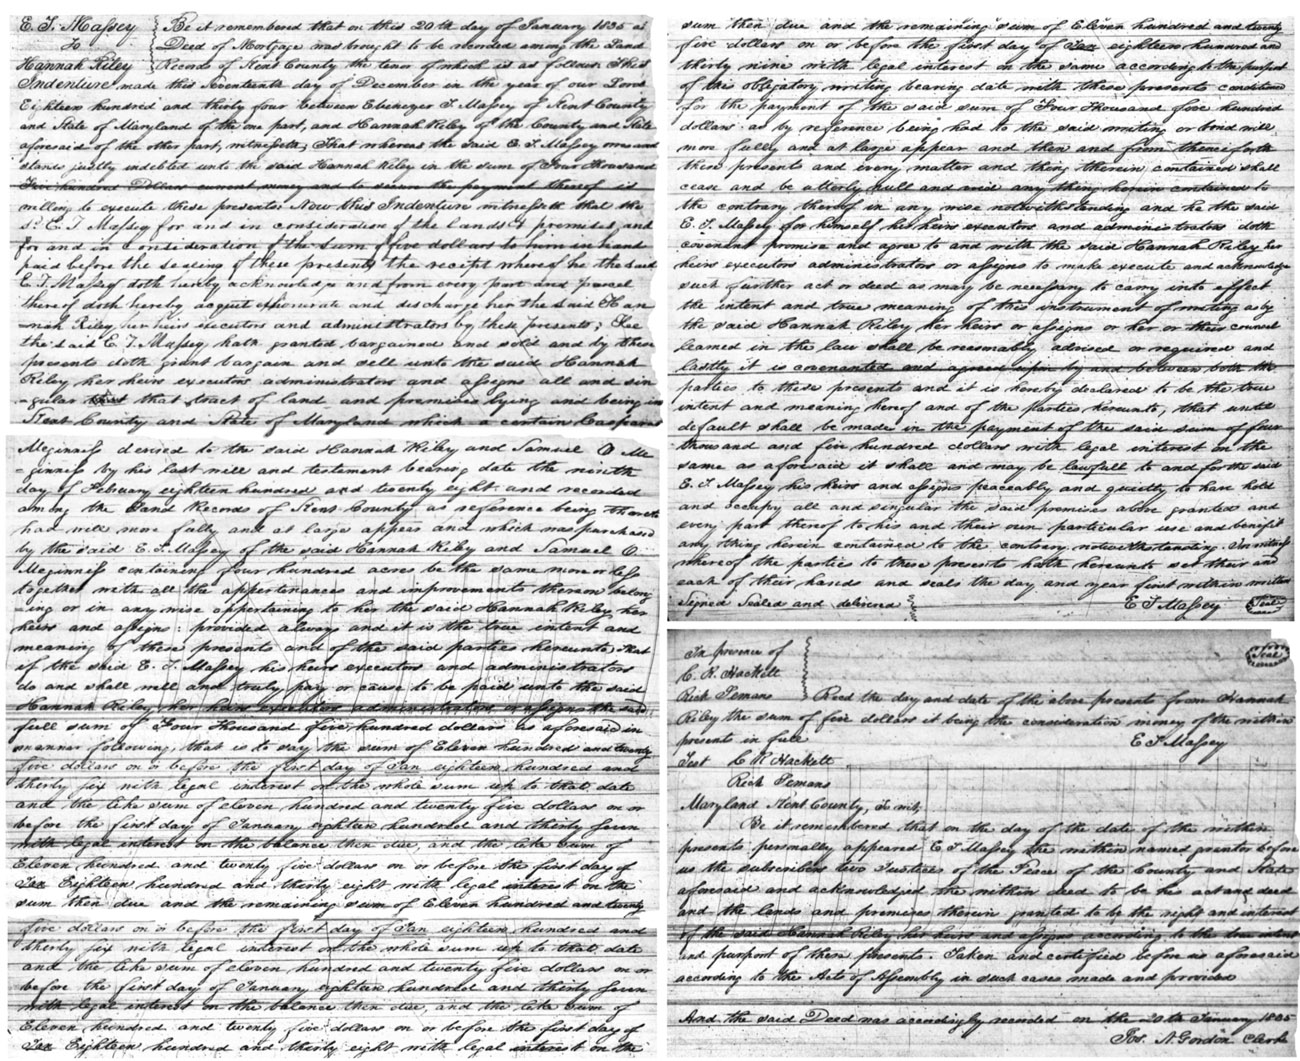 E. T. Massey
to
Hannah Riley
Be it remembered that on this 20th day of January 1835 a
Deed of Mortgage was brought to be recorded among the Land
Records of Kent County the tenor of which is as follows This
Indenture made this Seventeenth day of December in the year of our Lord
Eighteen hundred and thirty four between Ebenezer T Massey of Kent County
and State of Maryland of the one part, and Hannah Riley of the County and State
aforesaid of the other part, witnesseth, That whereas the said E. T. Massey owes and
stands justly indebted unto the said Hannah Riley in the sum of Four thousand
Five hundred Dollars current money and to secure the payment thereof is
willing to execute these presents Now this Indenture witnesseth that the
sd. E. T Massey for and in consideration of the lands & premises, and
for and in consideration of the sum of five dollars to him in hand
paid before the sealing of these presents, the receipt whereof he the said
E. T. Massey doth hereby acknowledge and from every part and parcel
thereof doth hereby acquit exonerate and discharge her the said Han
-nah Riley, her heirs executors and administrators by these presents; He
the said E. T. Massey hath granted bargained and sold and by these
presents doth grant bargain and sell unto the said Hannah
Riley her heirs executors administrators and assigns all and sin
-gular that tract of land and premises lying and being in
Kent County and State of Maryland which a certain Casparus
Meginniss devised to the said Hannah Riley and Samuel O Me
-ginniss by his last will and testament bearing date the ninth
day of February eighteen hundred and twenty eight and recorded
among the Land Records of Kent County as reference being thereto
had will more fully and at large appear and which was purchased
by the said E. T. Massey of the said Hannah Riley and Samuel O.
Meginniss containing four hundred acres be the same more or less
together with all the appertenances and improvements thereon belong
-ing or in any wise appertaining to her the said Hannah Riley her
heirs and assigns: provided always and it is the true intent and
meaning of these presents and of the said parties hereunto, that
if the said E. T. Massey his heirs executors and administrators
do and shall well and truly pay or cause to be paid unto the said
Hannah Riley her heirs executors administrators or assigns the said
full sum of Four thousand five hundred dollars as aforesaid in
manner following, that is to say the sum of Eleven hundred and twenty
five dollars on or before the first day of Jan eighteen hundred and
thirty six with legal interest on the whole sum up to that date
and the like sum of eleven hundred and twenty five dollars on or
before the first day of January eighteen hundred and thirty seven
with legal interest on the balance then due, and the like sum of
Eleven hundred and twenty five dollars on or before the first day of
Jan Eighteen hundred and thirty eight with legal interest on the
sum then due and the remaining sum of Eleven hundred and twenty
five dollars on or before the first day of Jan eighteen hundred and
thirty six with legal interest on the whole sum up to that date
and the like sum of eleven hundred and twenty five dollars on or
before the first day of January eighteen hundred and thirty seven
with legal interest on the balance then due, and the like sum of
Eleven hundred and twenty five dollars on or before the first day of
Jan Eighteen hundred and thirty eight with legal interest on the
sum then due and the remaining sum of Eleven hundred and twenty
five dollars on or before the first day of Jan eighteen hundred and
thirty nine with legal interest on the same according to the purport
of this obligatory writing bearing date with these presents condition
for the payment of the said sum of Four thousand five hundred
dollars as by reference being had to the said writing or bond will
more fully and at large appear and then and from thenceforth
these presents and every matter and thing therein contained shall
cease and be utterly null and void any thing herein contained to
the contrary thereof in any wise notwithstanding and he the said
E. T. Massey for himself his heirs executors and administrators doth
covenant promise and agree to and with the said Hannah Riley her
heirs executors administrators or assigns to make execute and acknowledge
such further act or deed as may be necessary to carry into effect
the intent and true meaning of this instrument of writing as by
the said Hannah Riley her heirs or assigns or her or their counsel
learned in the law shall be reasonably advised or required and
lastly it is covenanted and agreed upon by and between both the
parties to these presents and it is hereby declared to be the true
intent and meaning hereof and of the parties hereunto, that until
default shall be made in the payment of the said sum of four
thousand and five hundred dollars with legal interest on the
same as aforesaid it shall and may be lawfull to and for the said
E. T Massey his heirs and assigns peaceably and quietly to have hold
and occupy all and singular the said premises above granted and
every part thereof to his and their own particular use and benefit
any thing herein contained to the contrary notwithstanding. In witness
whereof the parties to these presents hath hereunto set their and
each of their hands and seals the day and year first within written
Signed Sealed and delivered
E T Massey Seal
In presence of
C. R. Hackett
Rich Semans
Seal
Recd the day and date of the above present from Hannah
Riley the sum of five dollars it being the consideration money of the within
presents in full
E T Massey
Test C R Hackett
Rich Semans
Maryland Kent County, to wit,
Be it remembered that on the day of the date of the within
presents personally appeared E T Massey the within named grantor before
us the subscribers two Justices of the Peace of the County and State
aforesaid and acknowledged the within deed to be his act and deed
and the lands and premises therein granted to be the right and interest
of the said Hannah Riley her heirs and assigns according to the true intent
and purport of these presents. Taken and certified before us aforesaid
according to the Acts of Assembly in such cases made and provided
And the said Deed was accordingly recorded on the 20th January 1835
Jos. N. Gordon Clerk